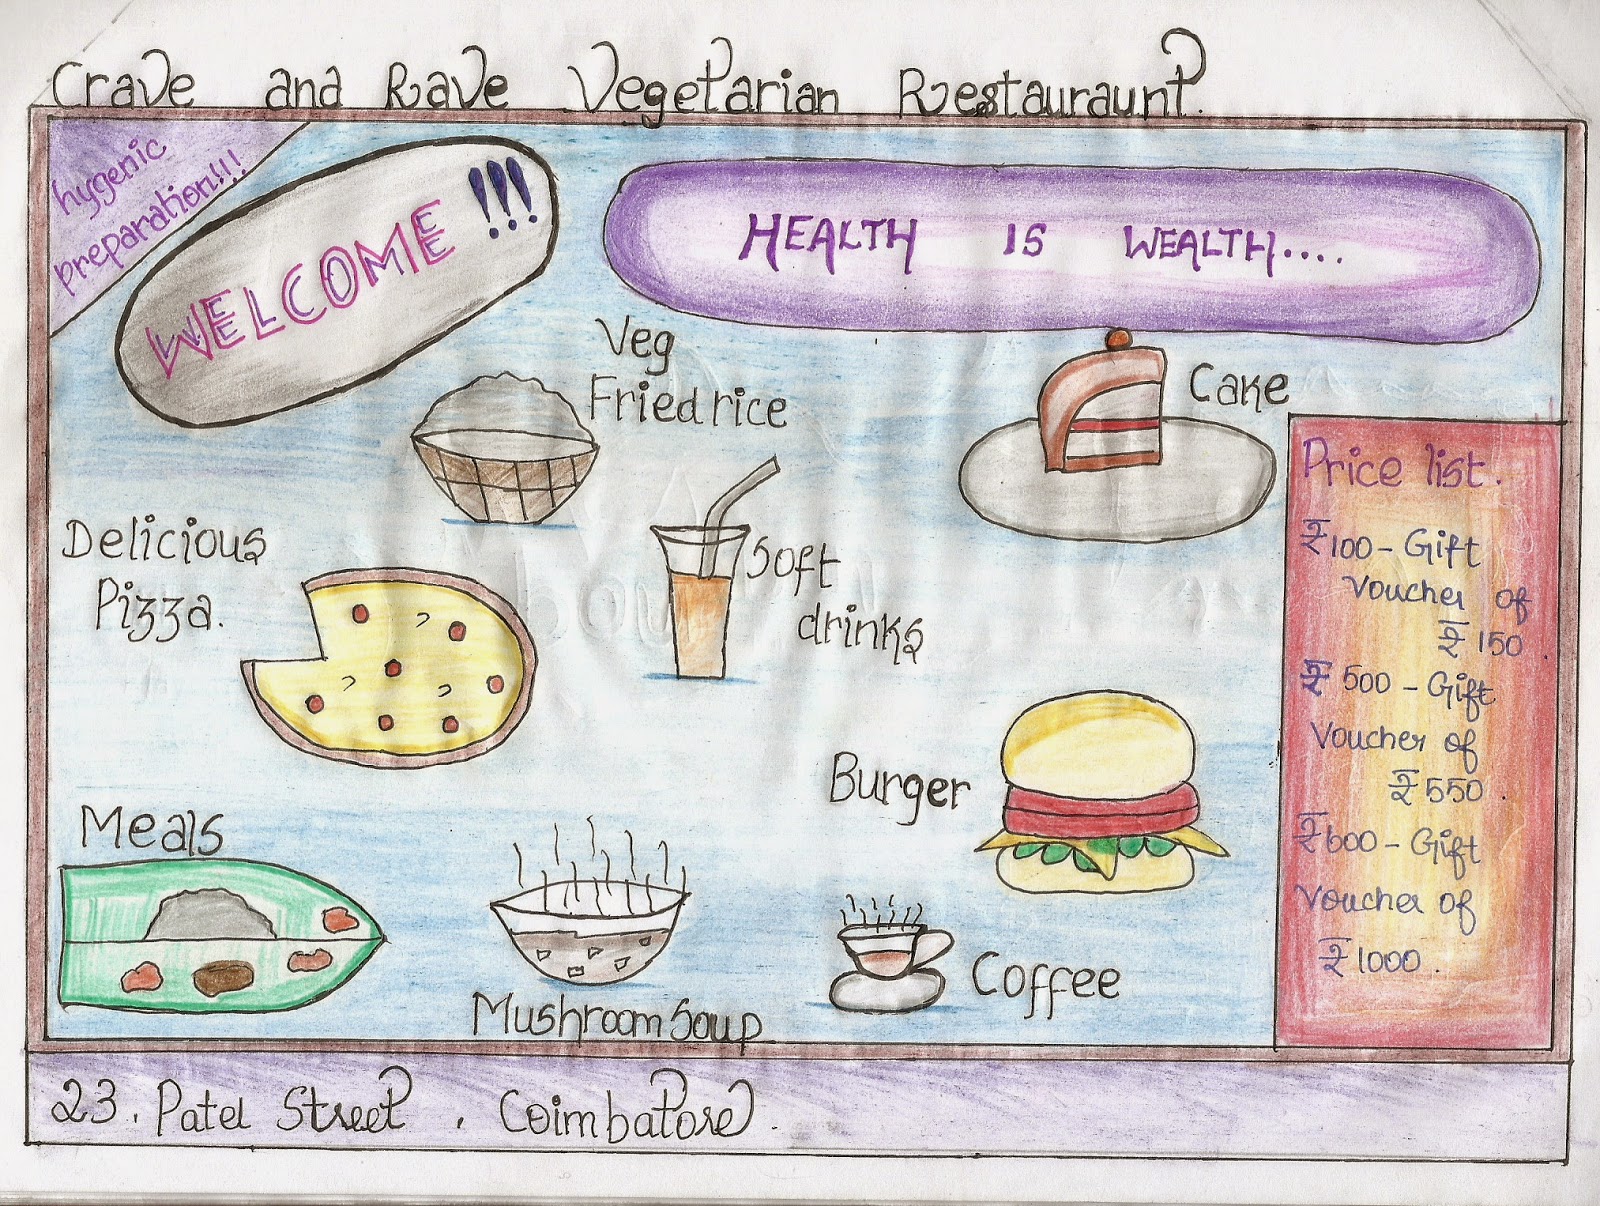 Crave and Rave Vegetarian Restauraunt.
hygenic
preparation!!!
WELCOME !!!
HEALTH IS WEALTH....
Veg
Fried rice
Cake
Delicious
Pizza.
Soft
drinks
Burger
Meals
Mushroom Soup
Coffee
Price list.
₹100 - Gift
Voucher of
₹ 150.
₹ 500 - Gift
Voucher of
₹ 550.
₹600 - Gift
Voucher of
₹ 1000.
23, Patel Street, Coimbatore.